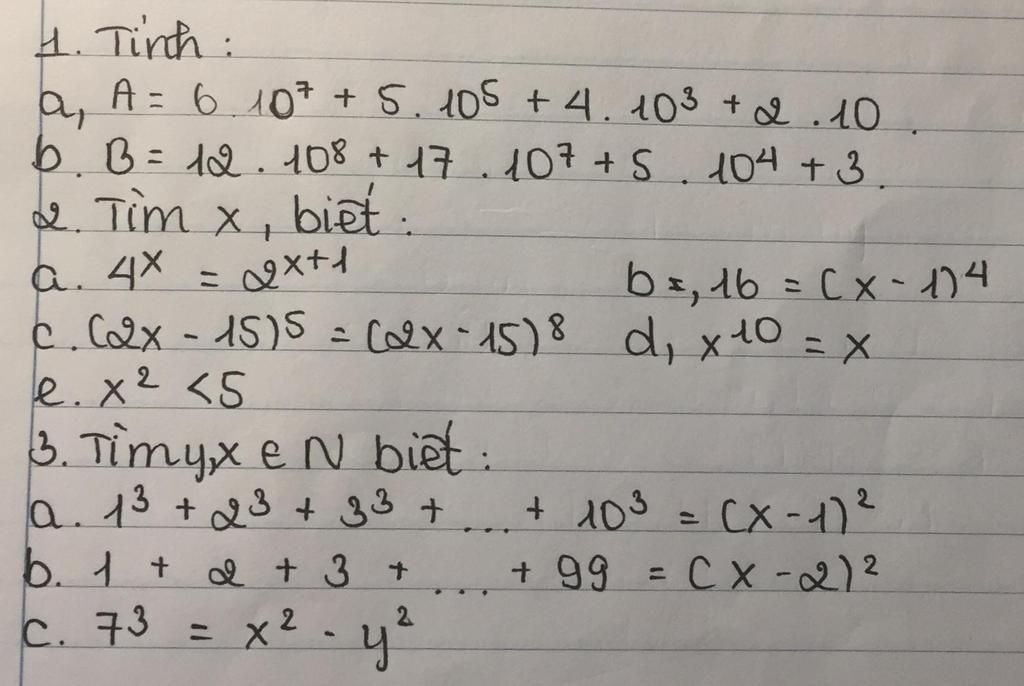 1. Tính :
a, A = 6 . 10⁷ + 5 . 10⁵ + 4 . 10³ + 2 . 10 .
b. B = 12 . 10⁸ + 17 . 10⁷ + 5 . 10⁴ + 3 .
2. Tìm x, biết :
a. 4ˣ = 2ˣ⁺¹ b =, 16 = (x - 1)⁴
c. (2x - 15)⁵ = (2x - 15)⁸ d, x¹⁰ = x
e. x² < 5
3. Tìm y,x ∈ N biết :
a. 1³ + 2³ + 3³ + ... + 10³ = (x - 1)²
b. 1 + 2 + 3 + ... + 99 = (x - 2)²
c. 7³ = x² - y²